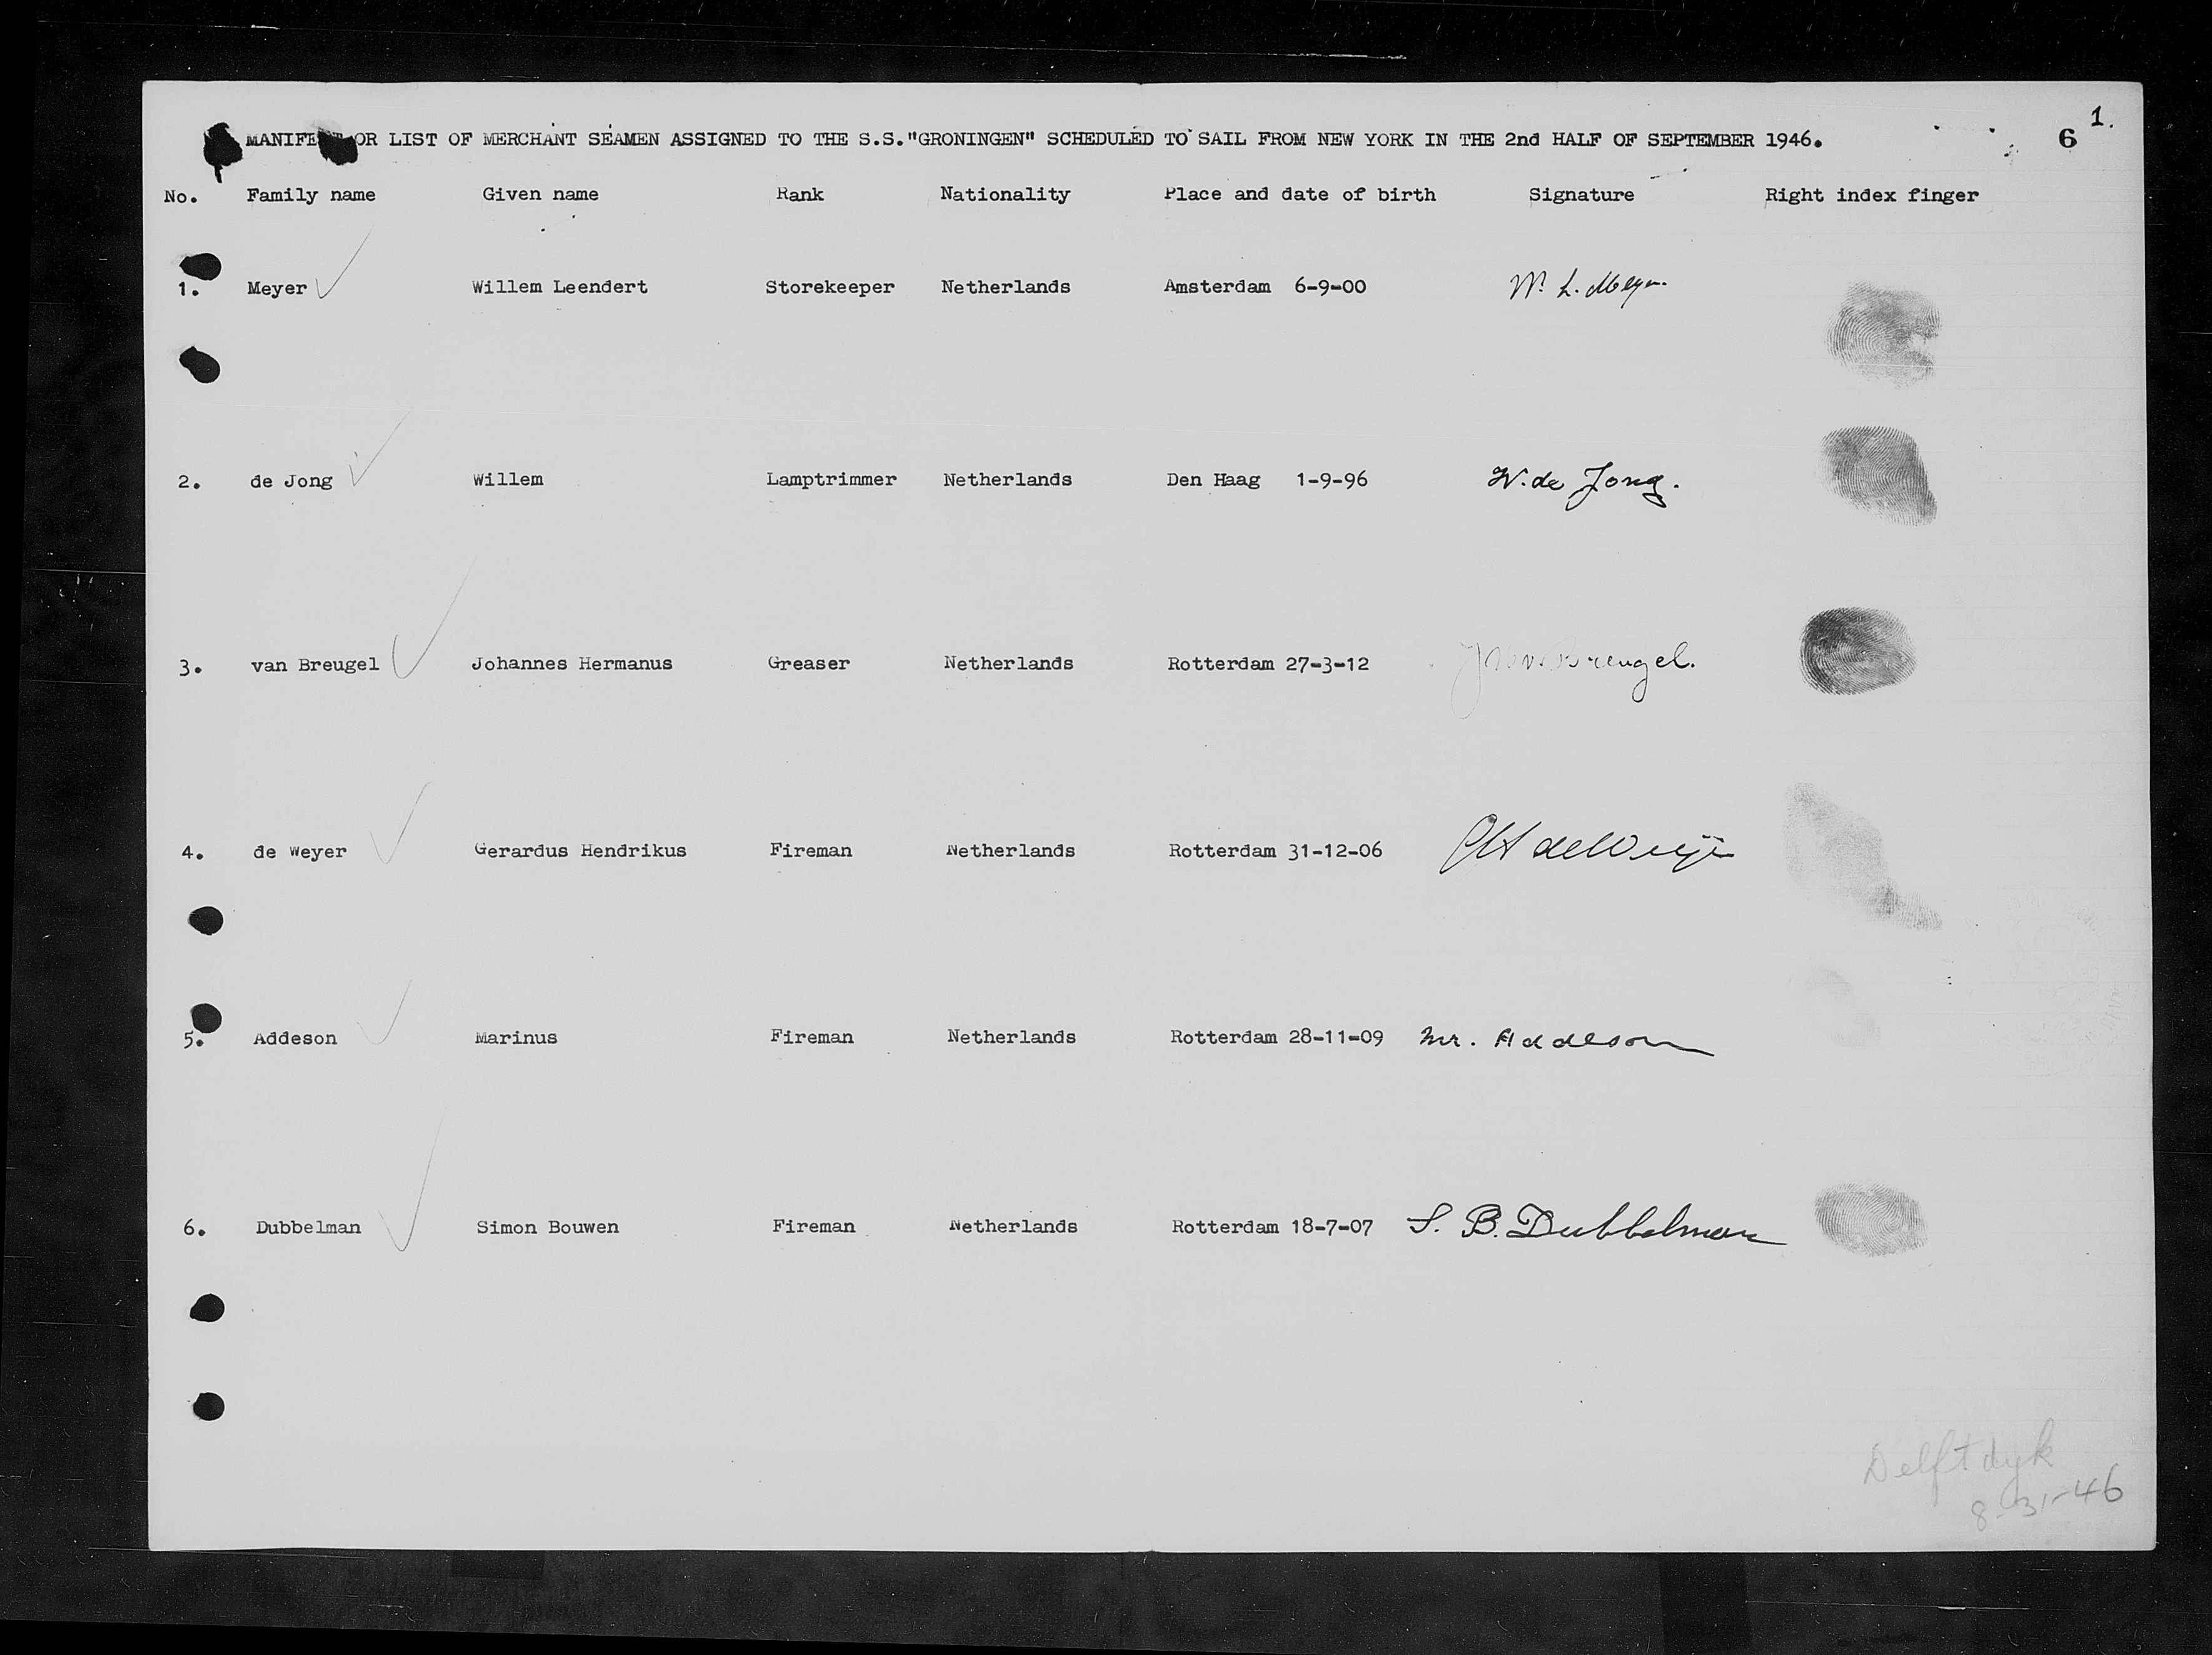 MANIFEST OR LIST OF MERCHANT SEAMEN ASSIGNED TO THE S.S."GRONINGEN" SCHEDULED TO SAIL FROM NEW YORK IN THE 2nd HALF OF SEPTEMBER 1946. 6 1.
No. Family name Given name Rank Nationality Place and date of birth Signature Right index finger
1. Meyer Willem Leendert Storekeeper Netherlands Amsterdam 6-9-00 W. L. Meyer
2. de Jong Willem Lamptrimmer Netherlands Den Haag 1-9-96 W. de Jong.
3. van Breugel Johannes Hermanus Greaser Netherlands Rotterdam 27-3-12 Breugel.
4. de Weyer Gerardus Hendrikus Fireman Netherlands Rotterdam 31-12-06
5. Addeson Marinus Fireman Netherlands Rotterdam 28-11-09 Mr. Addeson
6. Dubbelman Simon Bouwen Fireman Netherlands Rotterdam 18-7-07 S. B. Dubbelman
Delftdyk
8-31-46